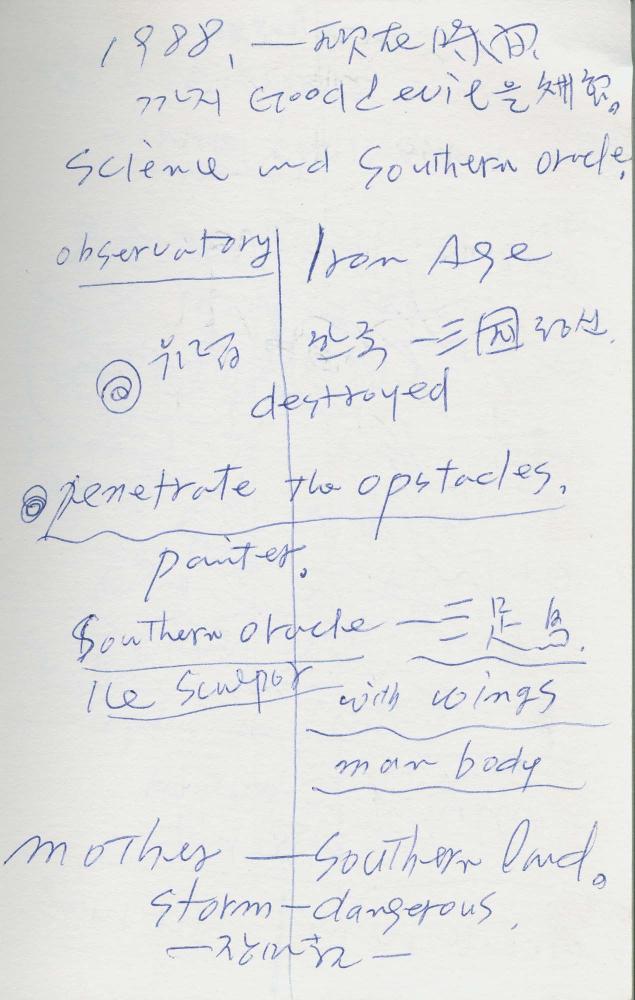 1988, — 現在 時間.
까지 Good & evil을 체험.
Science and Southern oracle.
observatory | Iron Age
한국 — 三国
destroyed
penetrate the opstacles.
painter.
Southern oracle — 三足鳥.
Ice Sculptor
with wings
man body
mother — Southern land.
storm — dangerous.